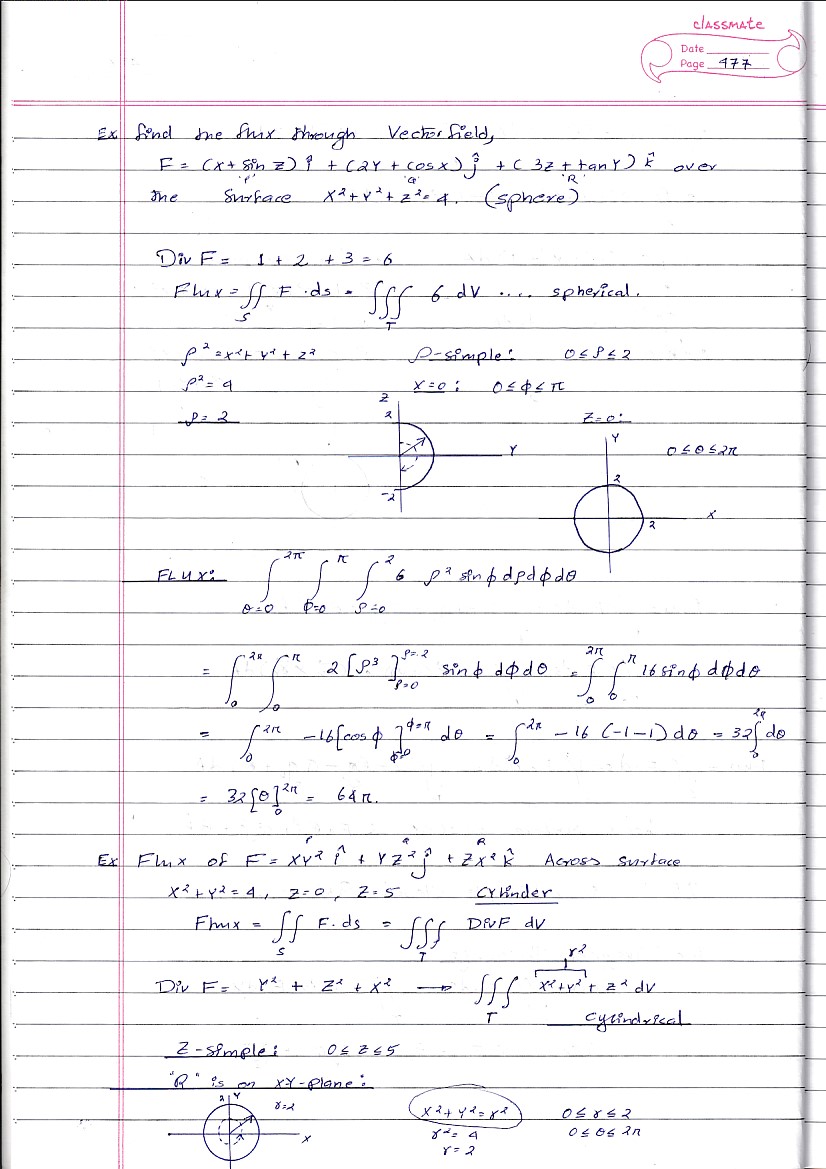 classmate
Date
Page 477
Ex Find the flux through Vector field,
F = (x + sin z) î + (2y + cos x) ĵ + (3z + tan y) k̂ over
P Q R
the Surface x² + y² + z² = 4. (sphere)
Div F = 1 + 2 + 3 = 6
Flux = ∬_S F · ds = ∭_T 6 dV .... spherical.
ρ² = x² + y² + z² ρ-simple: 0 ≤ ρ ≤ 2
ρ² = 4 x=0: 0 ≤ φ ≤ π
ρ = 2 z=0:
Z 2 Y -2
Y 2 2 X
0 ≤ θ ≤ 2π
FLUX: ∫_{θ=0}^{2π} ∫_{φ=0}^{π} ∫_{ρ=0}^{2} 6 ρ² sin φ dρ dφ dθ
= ∫_0^{2π} ∫_0^{π} 2 [ρ³]_{ρ=0}^{ρ=2} sin φ dφ dθ = ∫_0^{2π} ∫_0^{π} 16 sin φ dφ dθ
= ∫_0^{2π} -16 [cos φ]_{φ=0}^{φ=π} dθ = ∫_0^{2π} -16 (-1-1) dθ = 32 ∫_0^{2π} dθ
= 32 [θ]_0^{2π} = 64π.
P Q R
Ex Flux of F = xy² î + yz² ĵ + zx² k̂ Across surface
x² + y² = 4, z=0, z=5 Cylinder
Flux = ∬_S F · ds = ∭_T Div F dV
r²
Div F = y² + z² + x² → ∭_T x² + y² + z² dV
Cylindrical
Z-simple: 0 ≤ z ≤ 5
"R" is on xy-plane:
2 Y r=2 X
x² + y² = r² 0 ≤ r ≤ 2
r² = 4 0 ≤ θ ≤ 2π
r = 2